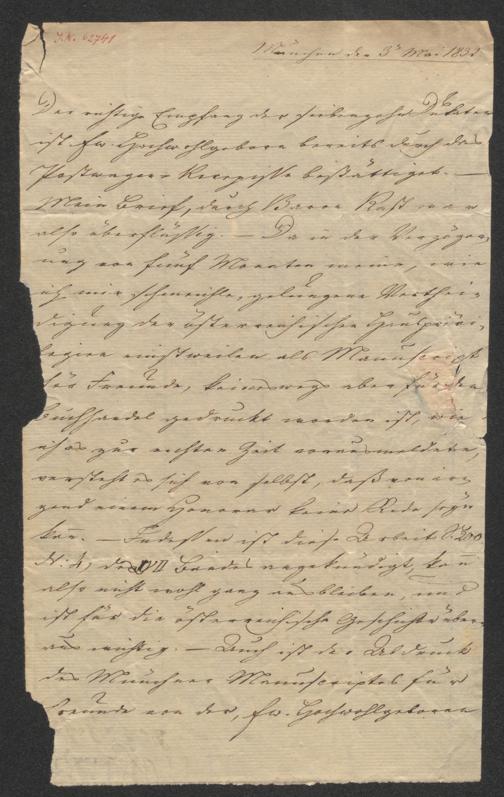 J.N. 62741
München den 3n Mai 1832
Der richtige Empfang der siebenzehn Dukaten
ist Ew. Hochwohlgeboren bereits durch das
Postwagens Recepisse bestättiget. —
Mein Brief, durch Baron Rast war
also überflüssig. — Da in der Verzöger-
ung von fünf Monaten meine, wie
ich mir schmeichle, gelungene Verthei-
digung der österreichischen Hausprivi-
legien einstweilen als Manuscript
für Freunde, keineswegs aber für den
Buchhandel gedruckt worden ist, wie
ich es zur rechten Zeit voraus meldete,
versteht es sich von selbst, daß von irr-
gend einem Honorar keine Rede seyn
kann. — Indessen ist diese Arbeit S. 200
N. 4, des VII Bandes angekündigt, kann
also nicht wohl ganz ausbleiben, und
ist für die österreichische Geschichte über-
aus wichtig. — Auch ist der Abdruck
des Münchner Manuscriptes für
Freunde von der, Ew. Hochwohlgeboren